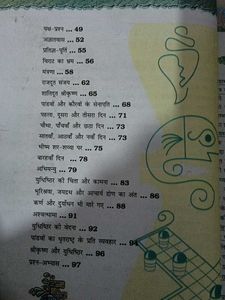 यक्ष-प्रश्न ... 49
अज्ञातवास ... 52
प्रतिज्ञा-पूर्ति ... 55
विराट का भ्रम ... 56
मंत्रणा ... 58
राजदूत संजय ... 62
शांतिदूत श्रीकृष्ण ... 65
पांडवों और कौरवों के सेनापति ... 68
पहला, दूसरा और तीसरा दिन ... 71
चौथा, पाँचवाँ और छठा दिन ... 73
सातवाँ, आठवाँ और नवाँ दिन ... 73
भीष्म शर-शय्या पर ... 75
बारहवाँ दिन ... 78
अभिमन्यु ... 79
युधिष्ठिर की चिंता और कामना ... 83
भूरिश्रवा, जयद्रथ और आचार्य द्रोण का अंत ... 86
कर्ण और दुर्योधन भी मारे गए ... 88
अश्वत्थामा ... 91
युधिष्ठिर की वेदना ... 92
पांडवों का धृतराष्ट्र के प्रति व्यवहार ... 94
श्रीकृष्ण और युधिष्ठिर ... 96
प्रश्न-अभ्यास ... 97